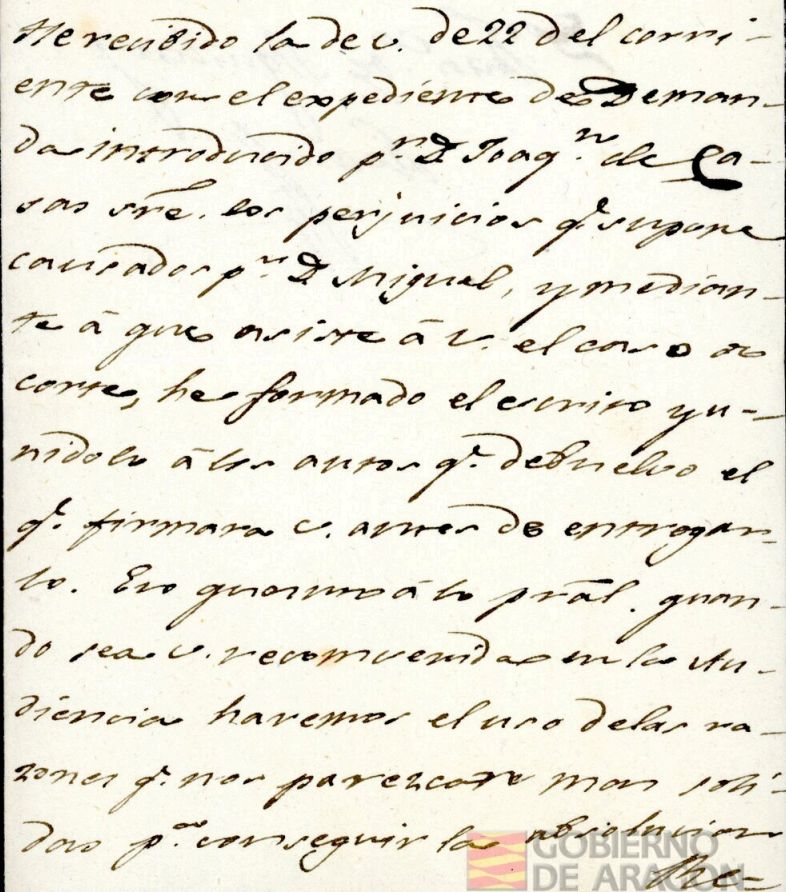 He recibido la de v. de 22 del corri-
ente con el expediente de Deman-
da introducido p.r D. Joaq.n de Ca-
sas sre. los perjuicios q.e supone
causados p.r D. Miguel, y median-
te á que asiste á v. el caso de
corte, he formado el escrito y u-
nidolo á los autos q.e debuelvo el
q.e firmara v. antes de entregar-
lo. En quanto á lo pral. quan-
do sea v. reconvenida en la Au-
diencia haremos el uso de las ra-
zones q.e nos parezcan mas soli-
das p.a conseguir la absolucion
GOBIERNO
DE ARAGON